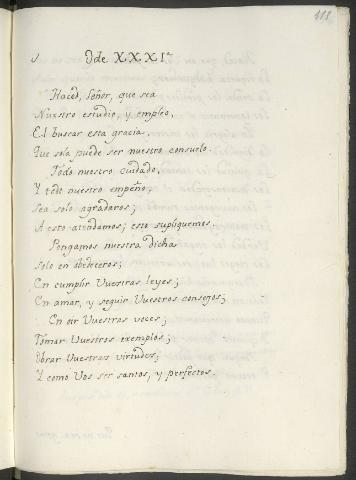 111
Yde XXXI.
Haced, Señor, que sea
Nuestro estudio, y empleo,
El buscar esta gracia,
Que sola puede ser nuestro consuelo.
Todo nuestro cuidado,
Y todo nuestro empeño,
Sea solo agradaros;
A esto atendamos; esto supliquemos.
Pongamos nuestra dicha
Solo en obedeceros;
En cumplir Vuestras leyes;
En amar, y seguir Vuestros consejos;
En oir Vuestras voces;
Tomar Vuestros exemplos;
Obrar Vuestras virtudes;
Y como Vos ser santos, y perfectos.